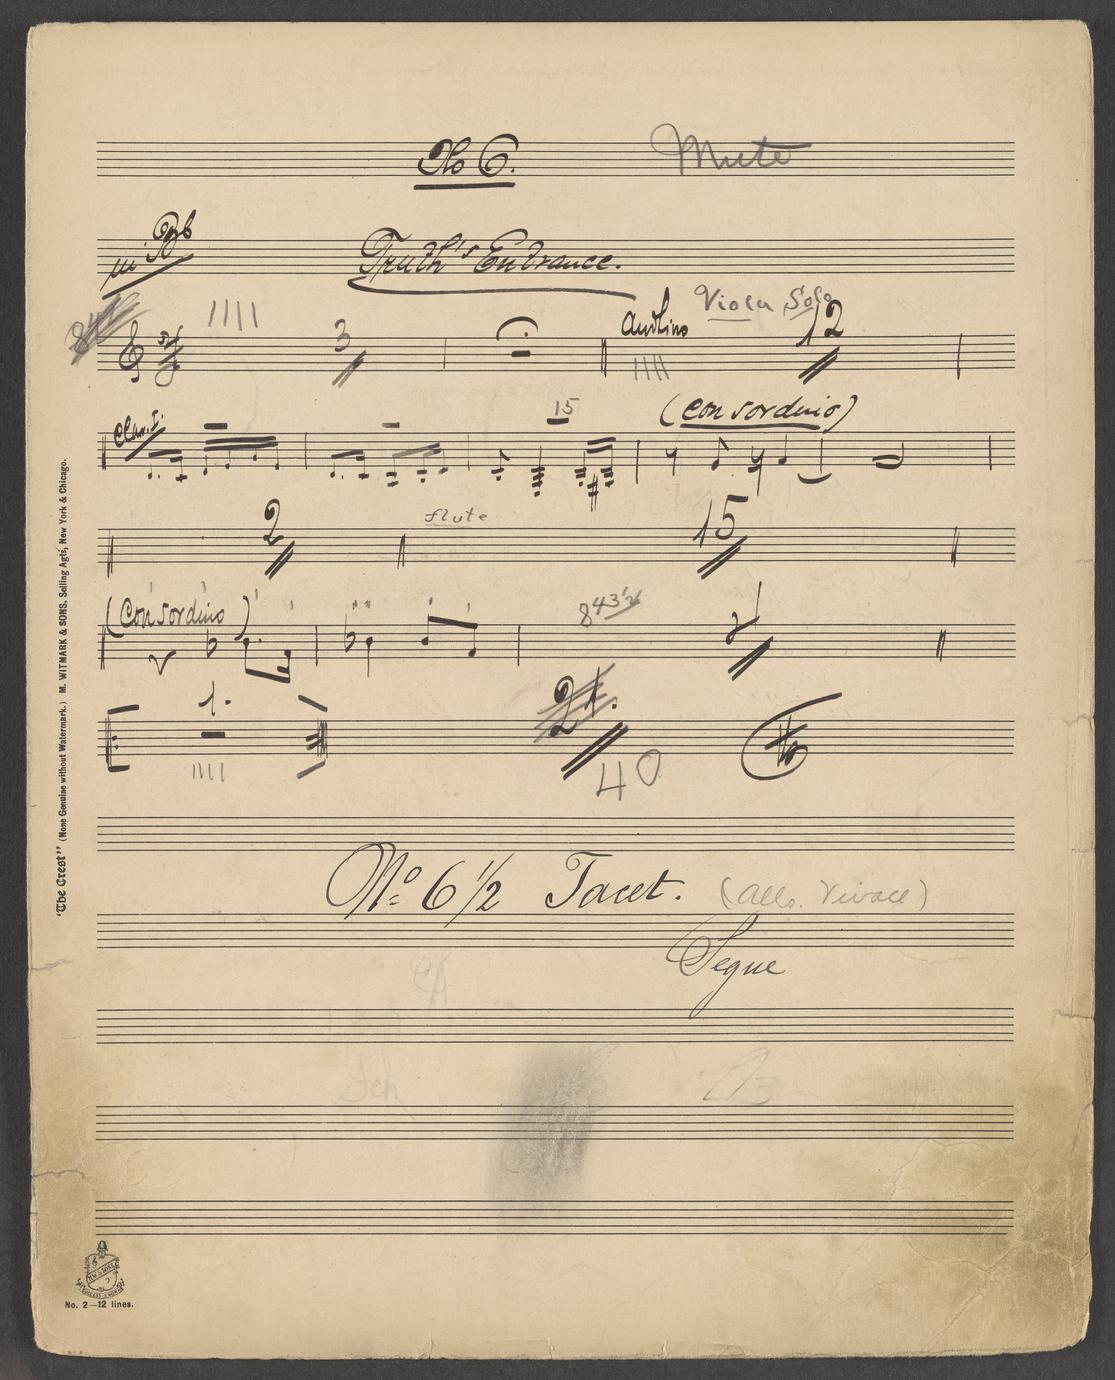 No 6. Mute
in Bb Truth's Entrance.
Viola Solo
3 Andtino 12
Clar. I. 15 (Con sordino)
2 flute 15
(Con sordino)
843
1. 21.
40
No. 6 1/2 Tacet. (Allo. Vivace)
Segue
"The Crest" (None Genuine without Watermark.) M. WITMARK & SONS. Selling Agts, New York & Chicago.
No. 2—12 lines.